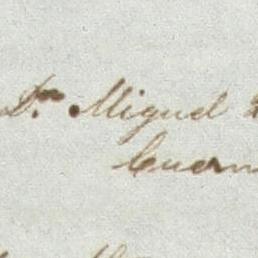 Dn. Miguel
Cuern